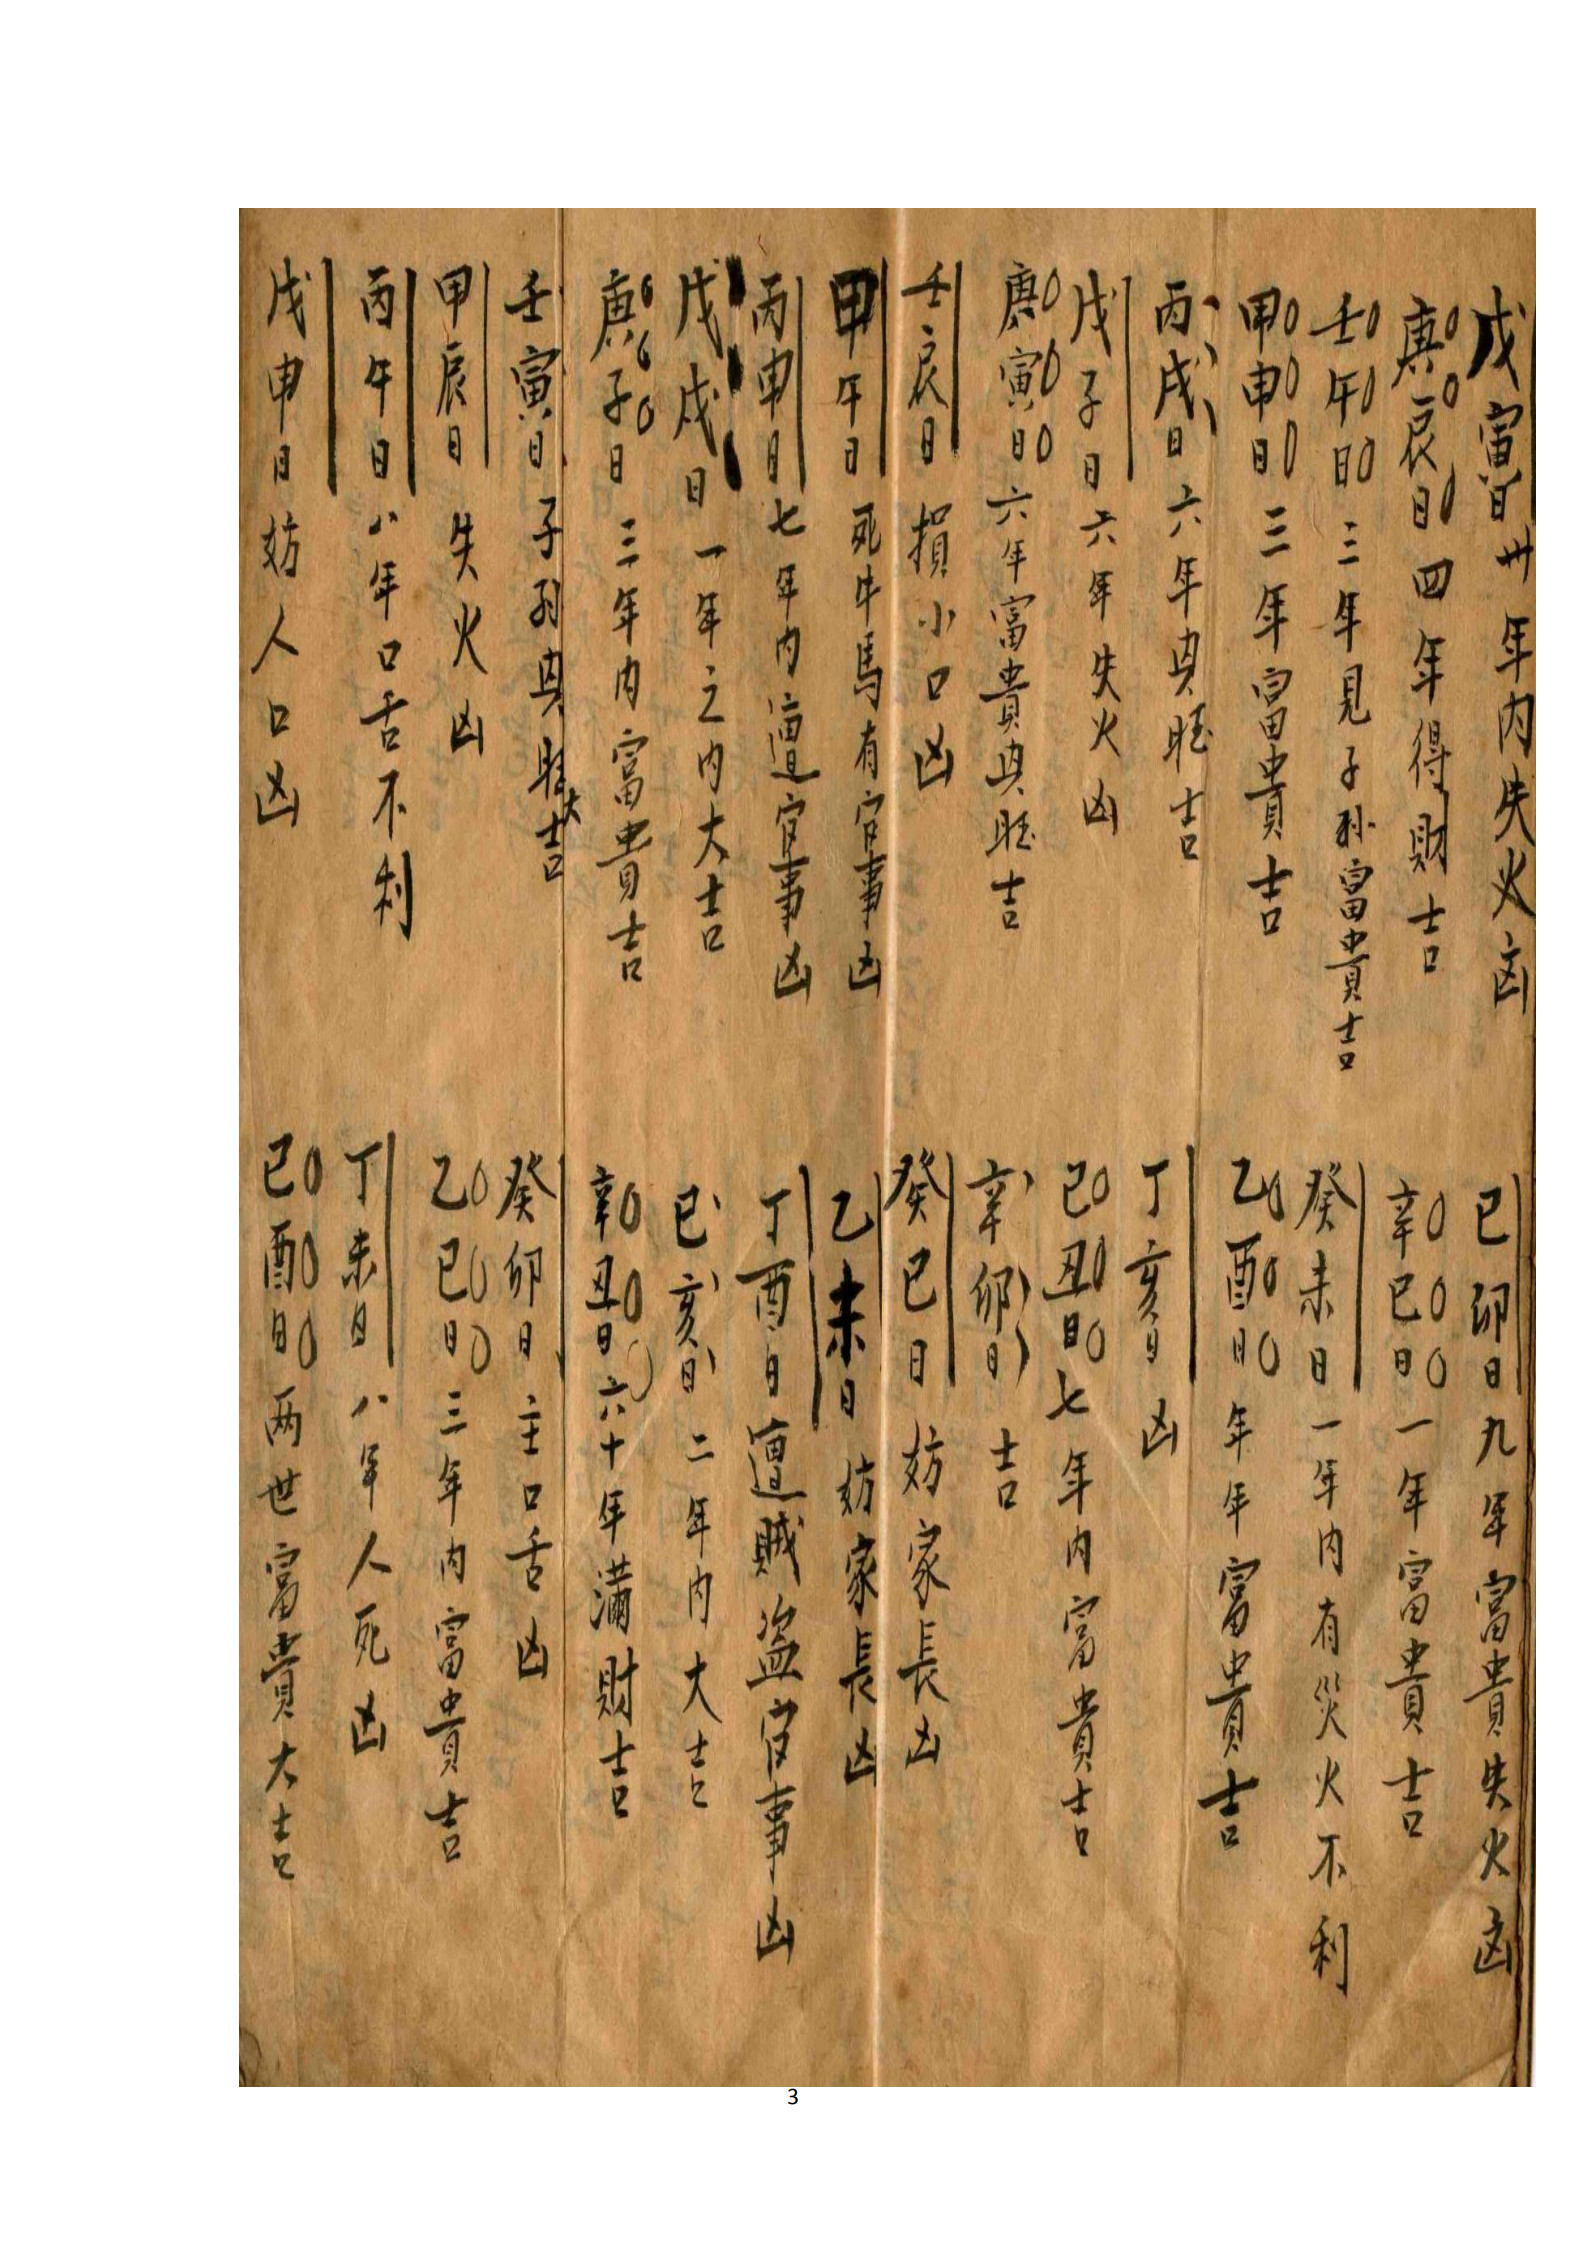 戊寅日卅年内失火凶
己卯日九年富貴失火凶
庚辰日四年得財吉
辛巳日一年富貴吉
壬午日三年見子孫富貴吉
癸未日一年内有災火不利
甲申日三年富貴吉
乙酉日年年富貴吉
丙戌日六年興旺吉
丁亥日凶
戊子日六年失火凶
己丑日七年内富貴吉
庚寅日六年富貴興旺吉
辛卯日吉
壬辰日損小口凶
癸巳日妨家長凶
甲午日死牛馬有官事凶
乙未日妨家長凶
丙申日七年内遭官事凶
丁酉日遭賊盗官事凶
戊戌日一年之内大吉
己亥日二年内大吉
庚子日三年内富貴吉
辛丑日六十年满財吉
壬寅日子孙興旺大吉
癸卯日主口舌凶
甲辰日失火凶
乙巳日三年内富貴吉
丙午日八年口舌不利
丁未日八年人死凶
戊申日妨人口凶
己酉日两世富貴大吉
3